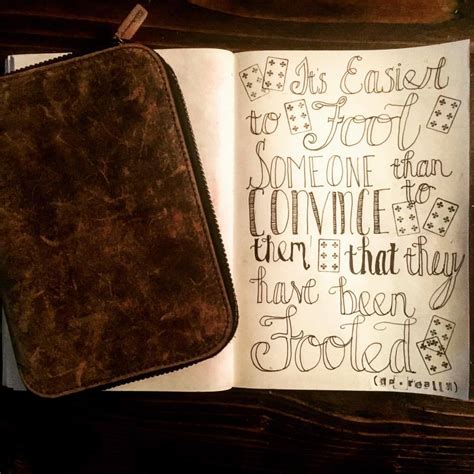 It's Easier
to Fool
SOMEONE than
to
CONVINCE
them that they
have been
Fooled
(no. really)